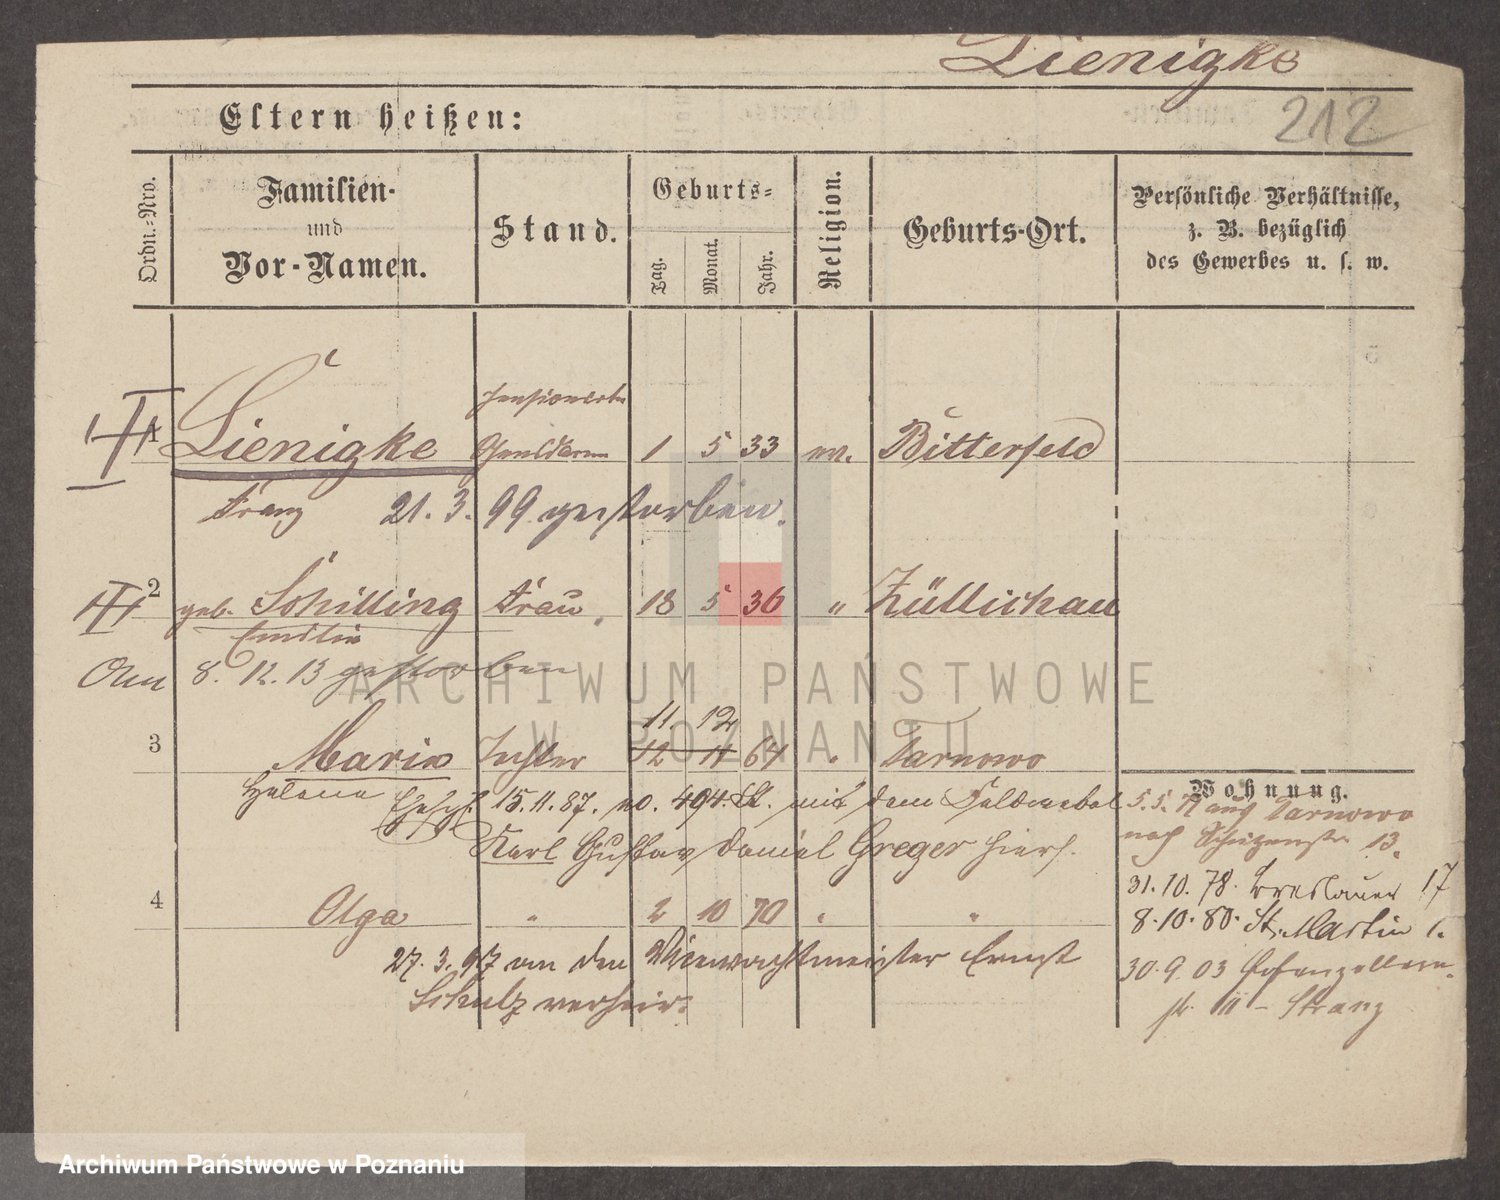 Lienigke
212
Eltern heißen:
Ordn.-Nro.
Familien- und Vor-Namen.
Stand.
Geburts-
Tag.
Monat.
Jahr.
Religion.
Geburts-Ort.
Persönliche Verhältnisse,
z. B. bezüglich
des Gewerbes u. s. w.
pensionirter
1 Lienigke Gendarm 1 5 33 ev. Bitterfeld
Franz 21. 3. 99 gestorben.
2 geb. Schilling Frau 18 5 36 " Züllichau
Emilie
Am 8. 12. 13 gestorben
11. 12
3 Marie Tochter 12 11 64 " Tarnowo
Helene Ehesch. 15. 11. 87. No. 494. mit dem Feldwebel
Karl Gustav Daniel Greger hiers.
Wohnung.
5.5. aus Tarnowo
nach Schützenstr. 13.
31. 10. 78. Breslauer 17
8. 10. 80. St. Martin
4 Olga " 2 10 70 " "
27. 3. 97 an den Vicewachtmeister Ernst
Schulz verheir.
30. 9. 03
ARCHIWUM PAŃSTWOWE
W POZNANIU
Archiwum Państwowe w Poznaniu